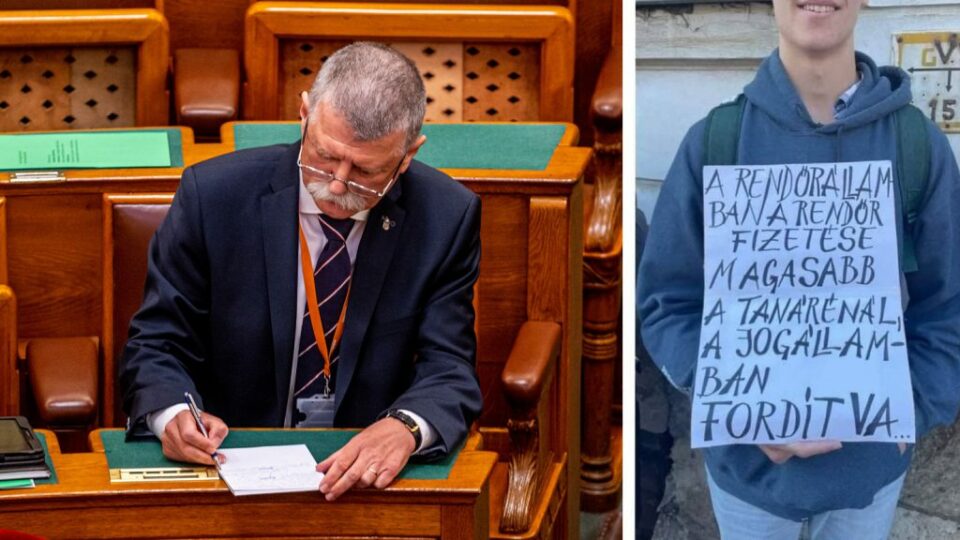 A RENDŐRÁLLAM
BAN A RENDŐR
FIZETÉSE
MAGASABB
A TANÁRÉNÁL,
A JOGÁLLAM-
BAN
FORDÍTVA...
G.V.
15